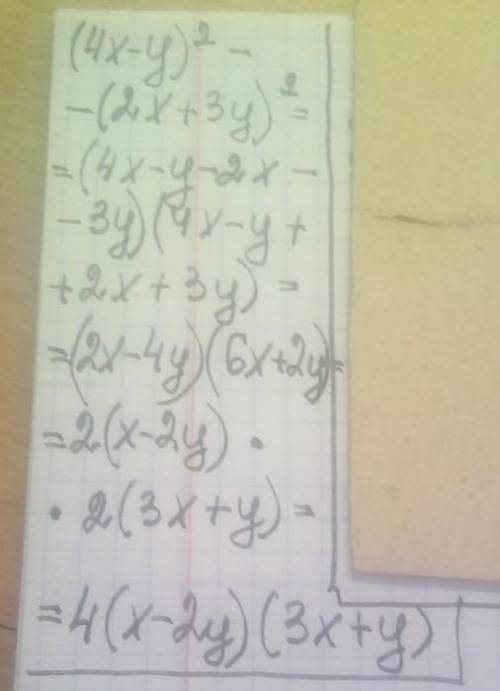 (4x-y)² -
-(2x+3y)² =
=(4x-y-2x-
-3y)(4x-y+
+2x+3y) =
=(2x-4y)(6x+2y)=
=2(x-2y) ·
· 2(3x+y) =
=4(x-2y)(3x+y)